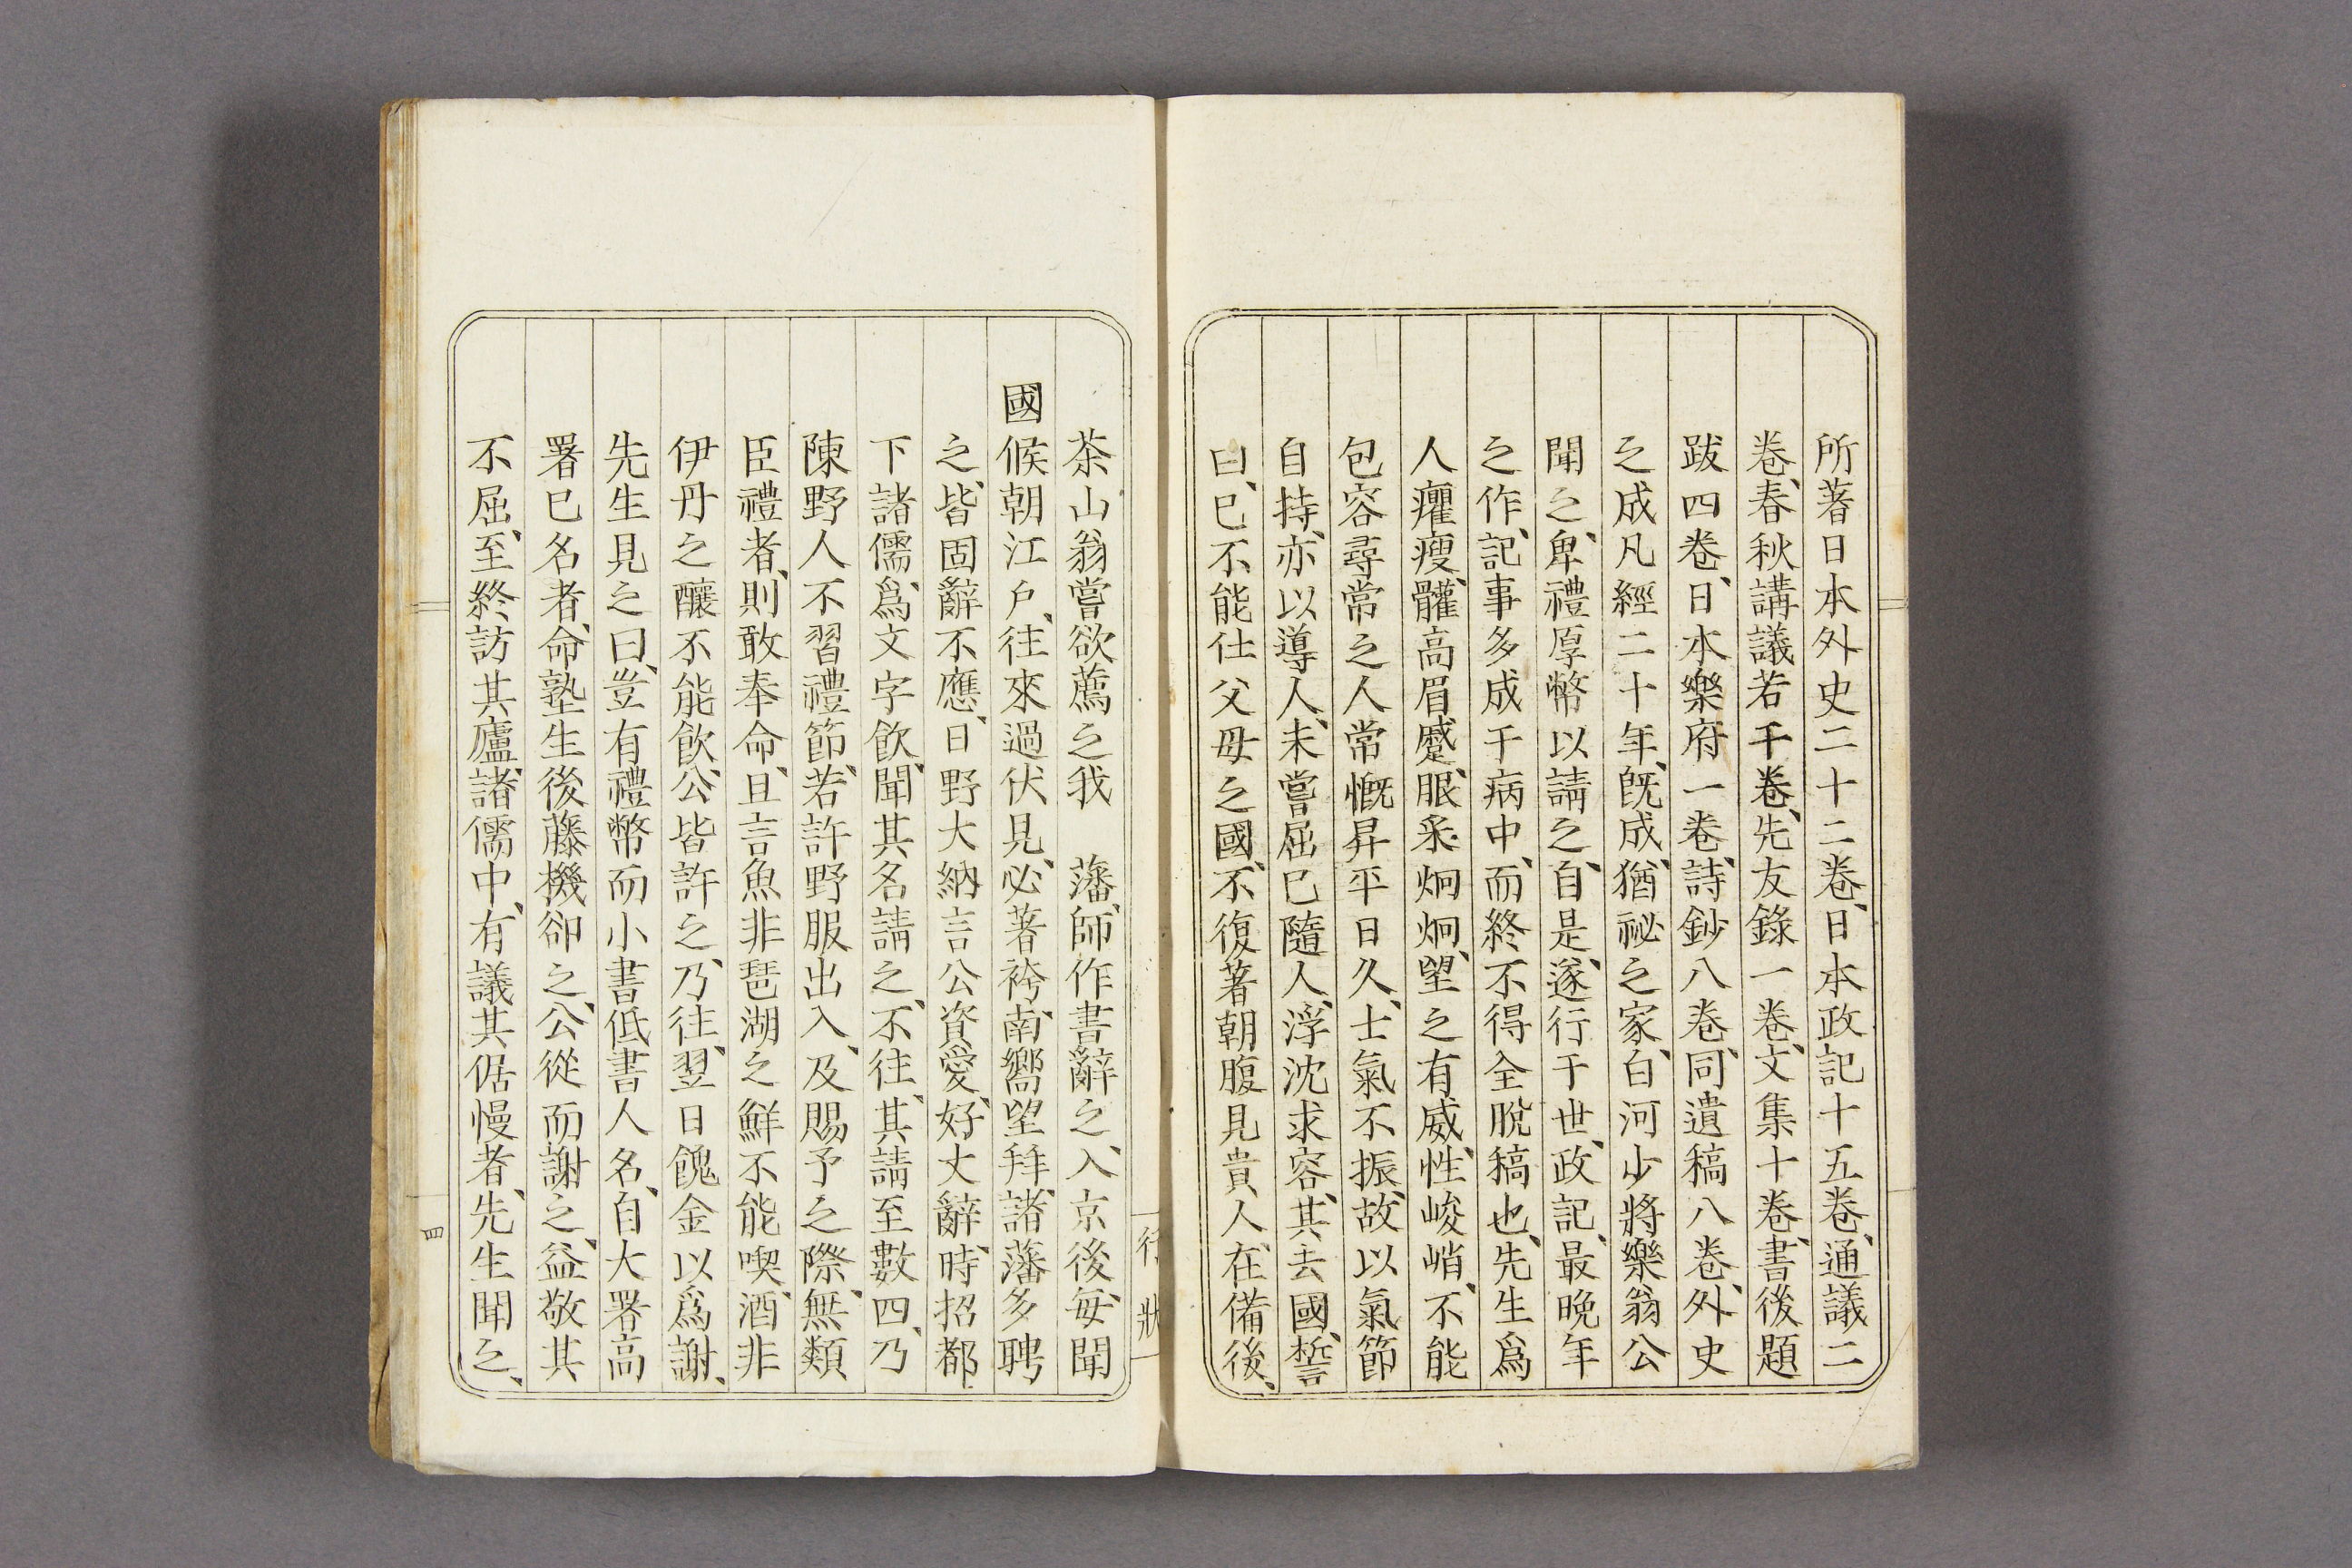 所著日本外史二十二卷、日本政記十五卷、通議二
卷、春秋講議若干卷、先友錄一卷、文集十卷、書後題
跋四卷、日本樂府一卷、詩鈔八卷、同遺稿八卷、外史
之成凡經二十年、旣成、猶祕之家、白河少將樂翁公
聞之、卑禮厚幣以請之、自是、遂行于世、政記、最晚年
之作、記事多成于病中、而終不得全脫稿也、先生爲
人癯瘦、髗高眉蹙、眼釆炯炯、望之有威、性、峻峭、不能
包容尋常之人常慨昇平日久、士氣不振、故以氣節
自持、亦以導人、未嘗屈已隨人、浮沈求容、其去國、誓
曰、已不能仕父母之國、不復著朝服見貴人、在備後、
茶山翁嘗欲薦之我　藩、師作書辭之、入京後、每聞
國候朝江戶、往來過伏見、必著袴、南嚮望拜、諸藩多聘
之、皆固辭不應、日野大納言公資愛、好文辭、時招都
下諸儒、爲文字飮、聞其名請之、不往、其請至數四、乃
陳野人不習禮節、若許野服出入、及賜予之際、無類
臣禮者、則敢奉命、且言魚非琵湖之鮮不能喫、酒非
伊丹之釀不能飮、公皆許之、乃往、翌日餽金以爲謝、
先生見之曰、豈有禮幣而小書低書人名、自大署高
署已名者、命塾生後藤機卻之、公從而謝之、益敬其
不屈、至終訪其廬、諸儒中、有議其倨慢者、先生聞之、
行狀
四